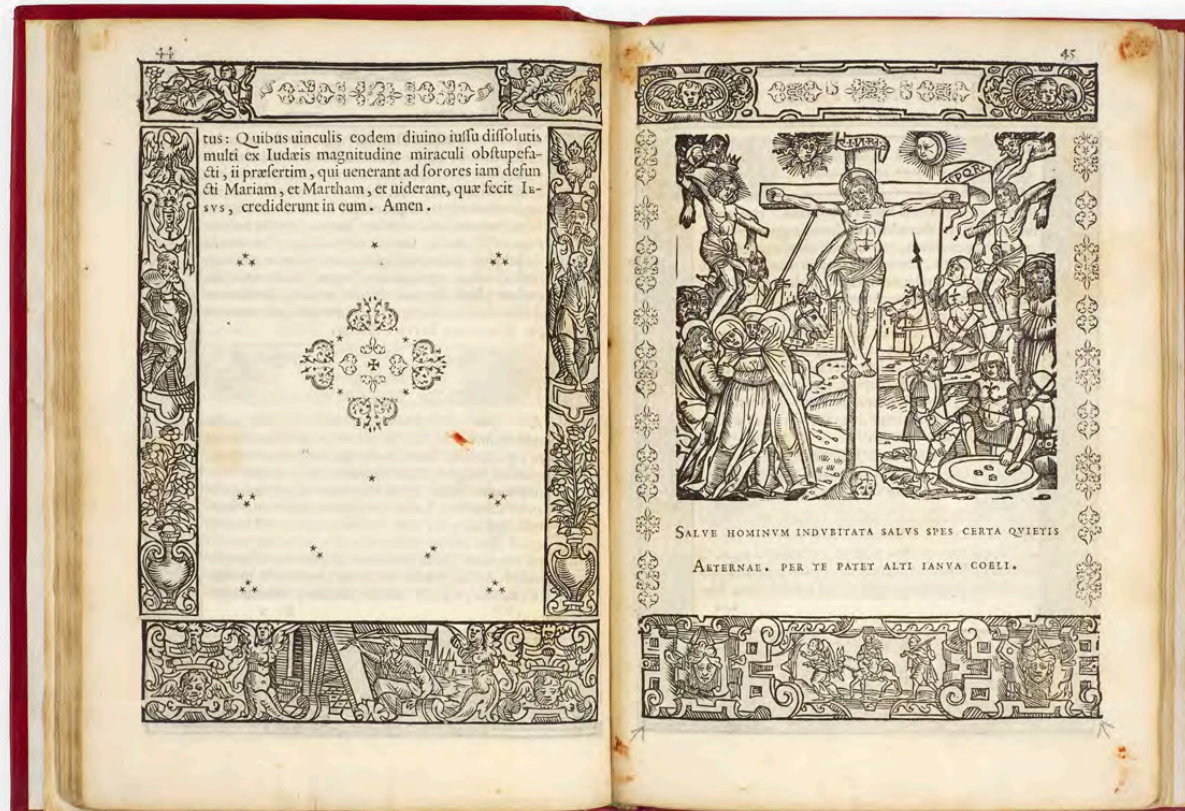 44
tus: Quibus uinculis eodem diuino iussu dissolutis
multi ex Iudæis magnitudine miraculi obstupefa-
cti, ii præsertim, qui uenerant ad sorores iam defun
cti Mariam, et Martham, et uiderant, quæ fecit IE-
SVS, crediderunt in eum. Amen.
45
I·N·R·I
SPQR
SALVE HOMINVM INDVBITATA SALVS SPES CERTA QVIETIS
AETERNAE. PER TE PATET ALTI IANVA COELI.